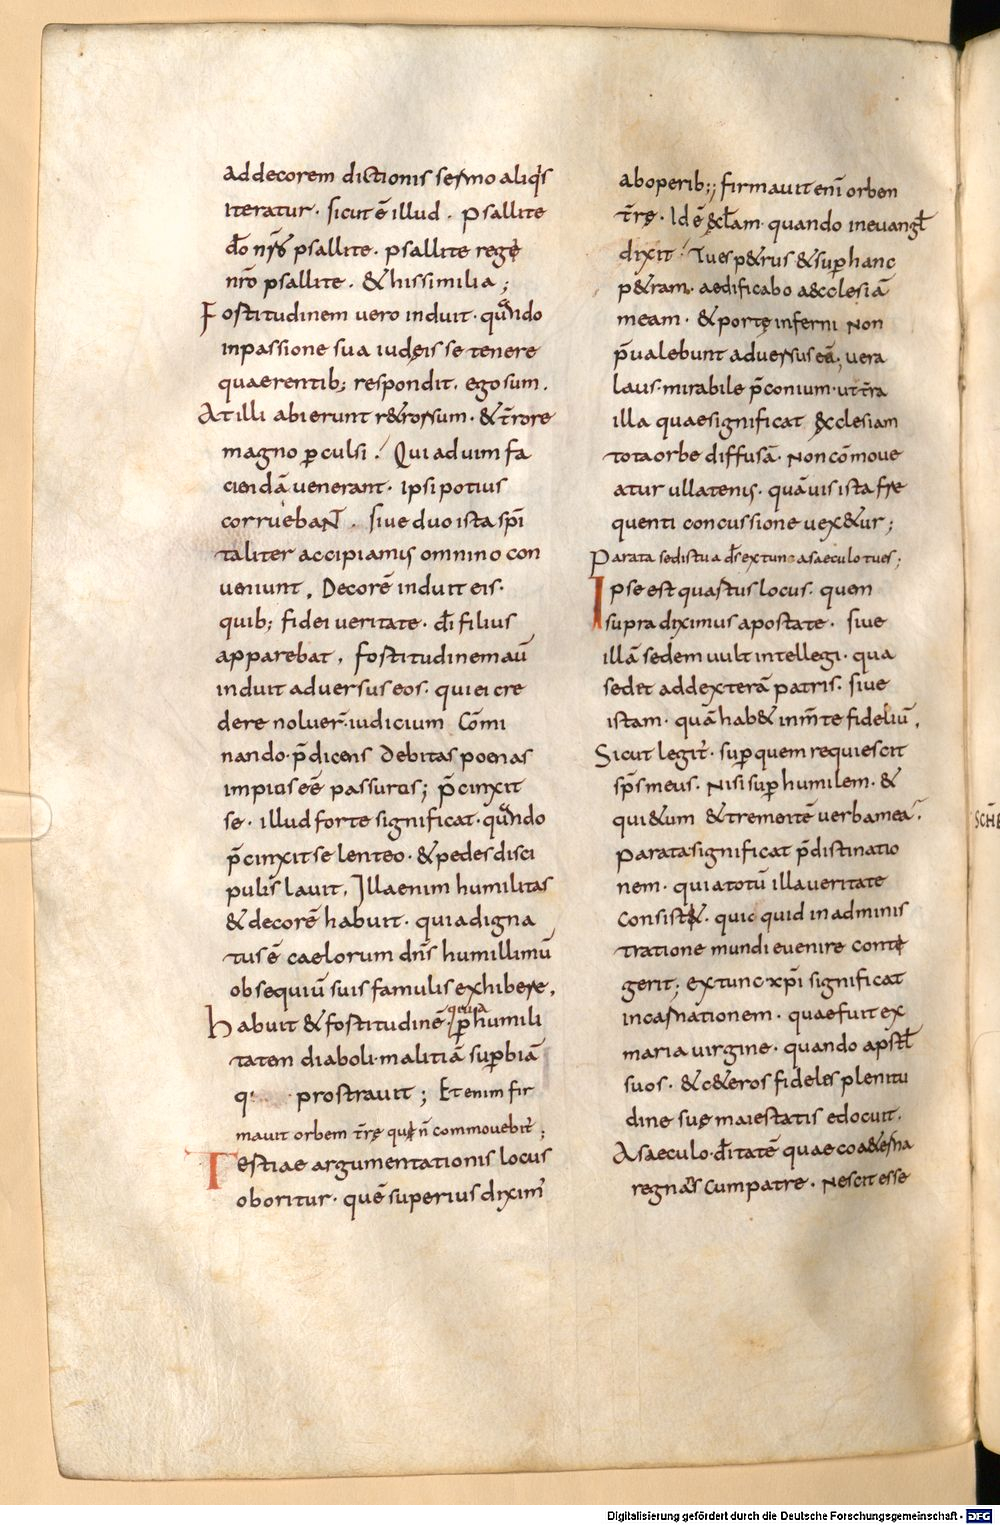 addecorem dictionis sermo aliqis
iteratur· sicut ē illud . Psallite
dō nr̄o psallite· psallite regę
nr̄o psallite . & hissimilia ;
Fortitudinem uero induit· quando
inpassione sua iudęis se tenere
quaerentib; respondit . ego sum .
At illi abierunt r&rorsum · & t̄rore
magno ꝑculsi . Qui ad uim fa
ciendā uenerant · ipsi potius
corruebaNT . siue duo ista spī
taliter accipiamus omnino con
ueniunt . Decorē induit eis·
quib; fidei ueritate· dī filius
apparebat . fortitudinem aū
induit aduersus eos· qui ei cre
dere noluer̄· iudicium Cōmi
nando· p̄dicens debitas poenas
impios eē passuros ; p̄cinxit
se · illud forte significat· quando
p̄cinxit se lenteo · & pedes disci
pulis lauit . Illa enim humilitas
& decorē habuit · quia digna
tus ē caelorum dn̄s humillimū
obsequiū suis famulis exhibere .
habuit & fortitudinē· quia ꝑ humili
tatem diaboli· malitiā suꝑbiā
q· prostrauit ; Et enim fir
mauit orbem t̄rę quę n̄ commouebit̄ ;
Tertiae argumentationis locus
oboritur · quē superius dixim'
ab operib;; firmauit enī orbem
t̄rę· Id ē ęccl̄am · quando in euangl̄
dixit · Tu es p&rus & suꝑ hanc
p&ram · aedificabo aecclesiā
meam · & portę inferni Non
p̄ualebunt aduersus eā; uera
laus· mirabile p̄conium· ut t̄ra
illa quae significat ęcclesiam
tota orbe diffusā · Non cōmoue
atur ullatenis · quāuis ista fre
quenti concussione uex&ur ;
Parata sedis tua dš ex tunc a saeculo tu es ;
Ipse est quartus locus · quem
supra diximus a portate · siue
illā sedem uult intellegi · qua
sedet ad dexterā patris · siue
istam · quā hab& in m̄te fideliū .
Sicut legit̄ · suꝑ quem requiescit
sp̄s meus · Nisi suꝑ humilem · &
qui&um & trementē uerba mea .
parata significat p̄distinatio
nem · quia totū illa ueritate
Consist& · quic quid in adminis
tratione mundi euenire contę
gerit ; ex tunc xp̄i significat
incarnationem · quae fuit ex
maria uirgine · quando apstl̄
suos · & c&eros fideles plenitu
dine suę maiestatis edocuit .
A saeculo · dītatē quae coaeterna
regnans cum patre . Nescit esse
SCHE
Digitalisierung gefördert durch die Deutsche Forschungsgemeinschaft - DFG